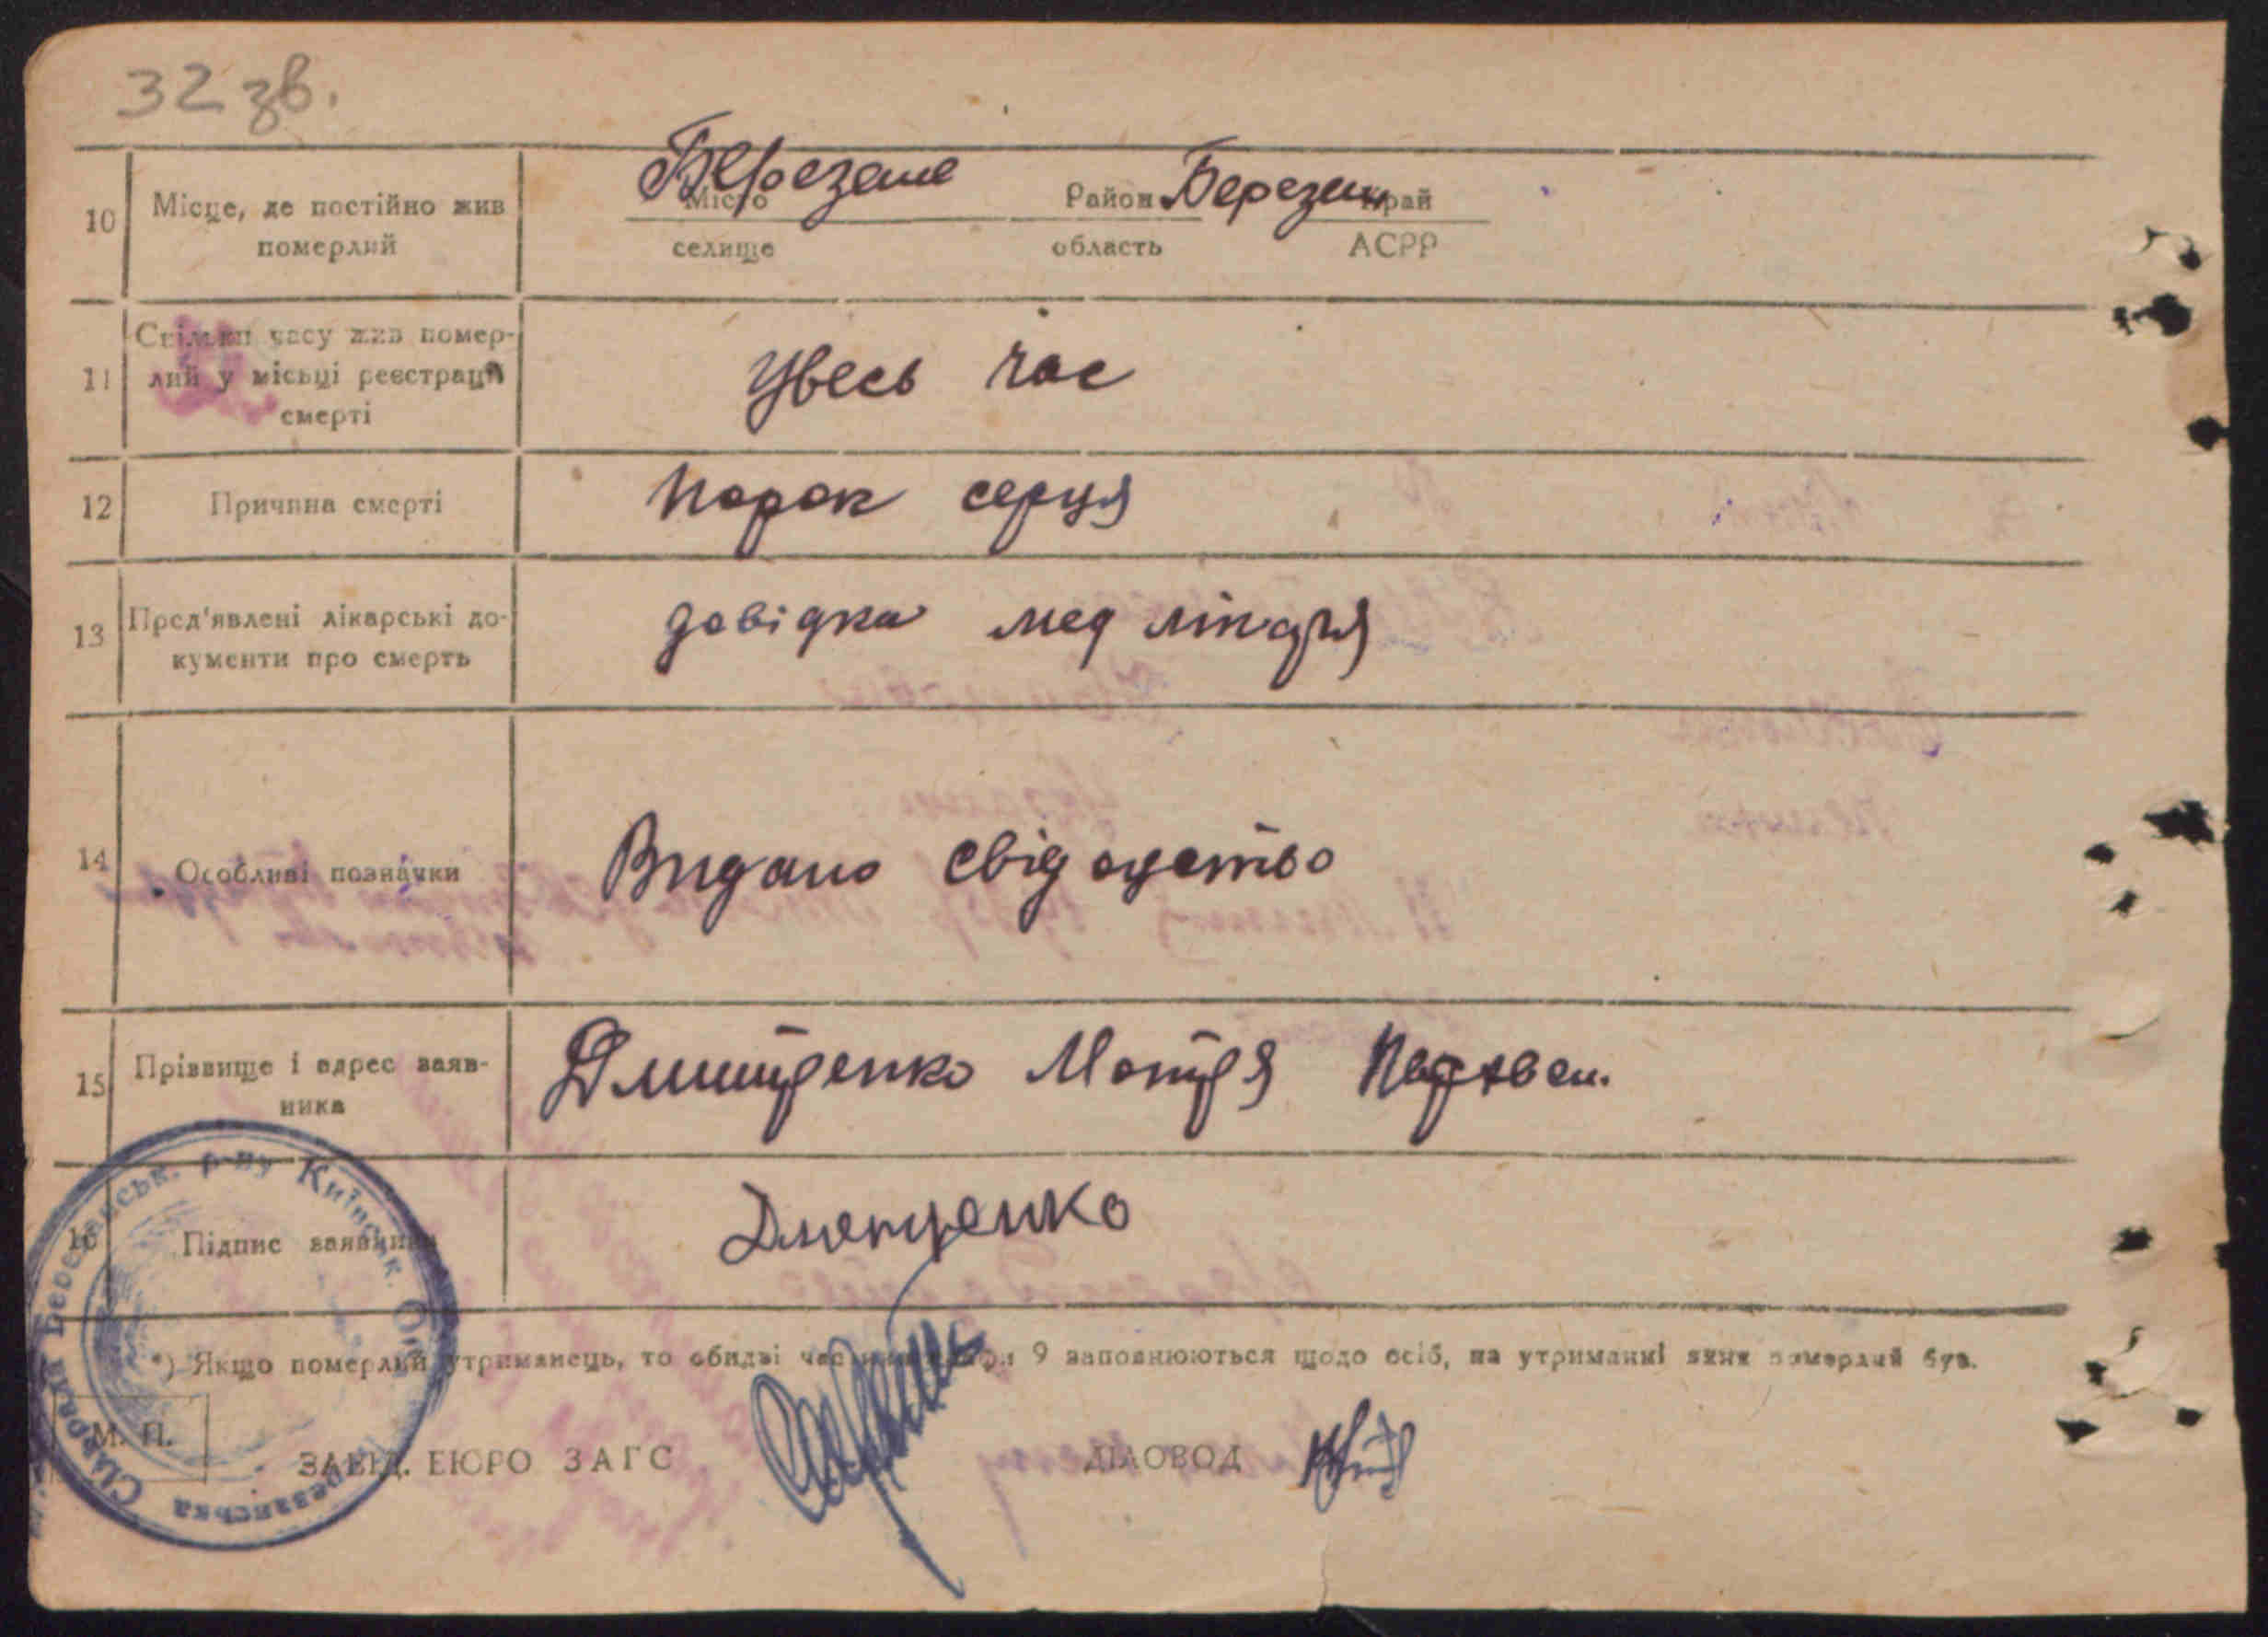 32 зв.
10 Місце, де постійно жив померлий
Березане
Місто
селище
Район Березан край
область АСРР
11 Скільки часу жив помер-
лий у місьці реєстрації
смерті
Увесь час
12 Причина смерті
порок серця
13 Пред'явлені лікарські до-
кументи про смерть
довідка мед лікаря
14 Особливі позначки
Видано свідоцтво
15 Прізвище і адрес заяв-
ника
Дмитренко Мотря
16 Підпис заявника
Дмитренко
*) Якщо померлий утриманець, то обидві частини графи 9 заповнюються щодо осіб, на утриманні яких померлий був.
М. П.
ЗАВІД. БЮРО ЗАГС
ДІЛОВОД
Сільрада Березанськ. р-ну Київськ. Обл.
Березанська